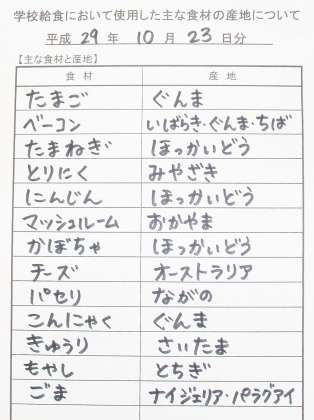 学校給食において使用した主な食材の産地について
平成 29 年 10 月 23 日分
【主な食材と産地】
食材 産地
たまご ぐんま
ベーコン いばらき・ぐんま・ちば
たまねぎ ほっかいどう
とりにく みやざき
にんじん ほっかいどう
マッシュルーム おかやま
かぼちゃ ほっかいどう
チーズ オーストラリア
パセリ ながの
こんにゃく ぐんま
きゅうり さいたま
もやし とちぎ
ごま ナイジェリア・パラグアイ